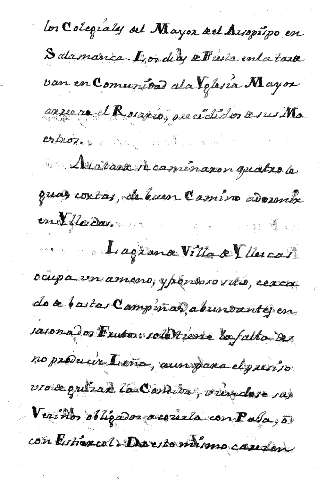 los Colegiales del Mayor del Arzobispo en
Salamanca. Los dias de Fiesta en la tarde
van en Comunidad a la Yglesia Mayor
a el Rosario, precedidos de sus Ma
estros.
A la tarde se caminaron quatro le
guas cortas, de buen Camino a dormir
en Yllescas.
La grande Villa de Yllescas
ocupa un ameno, y sitio, cerca
do de bastas Campiñas, abundantes en
sasonados Frutos: solo tiene la falta de
no producir Leña, aun para el presiso
uso de guisar la Comida, viendose sus
Vecinos obligados a cocerla con Paja, ò
con Estiercol. De esto mismo caresen